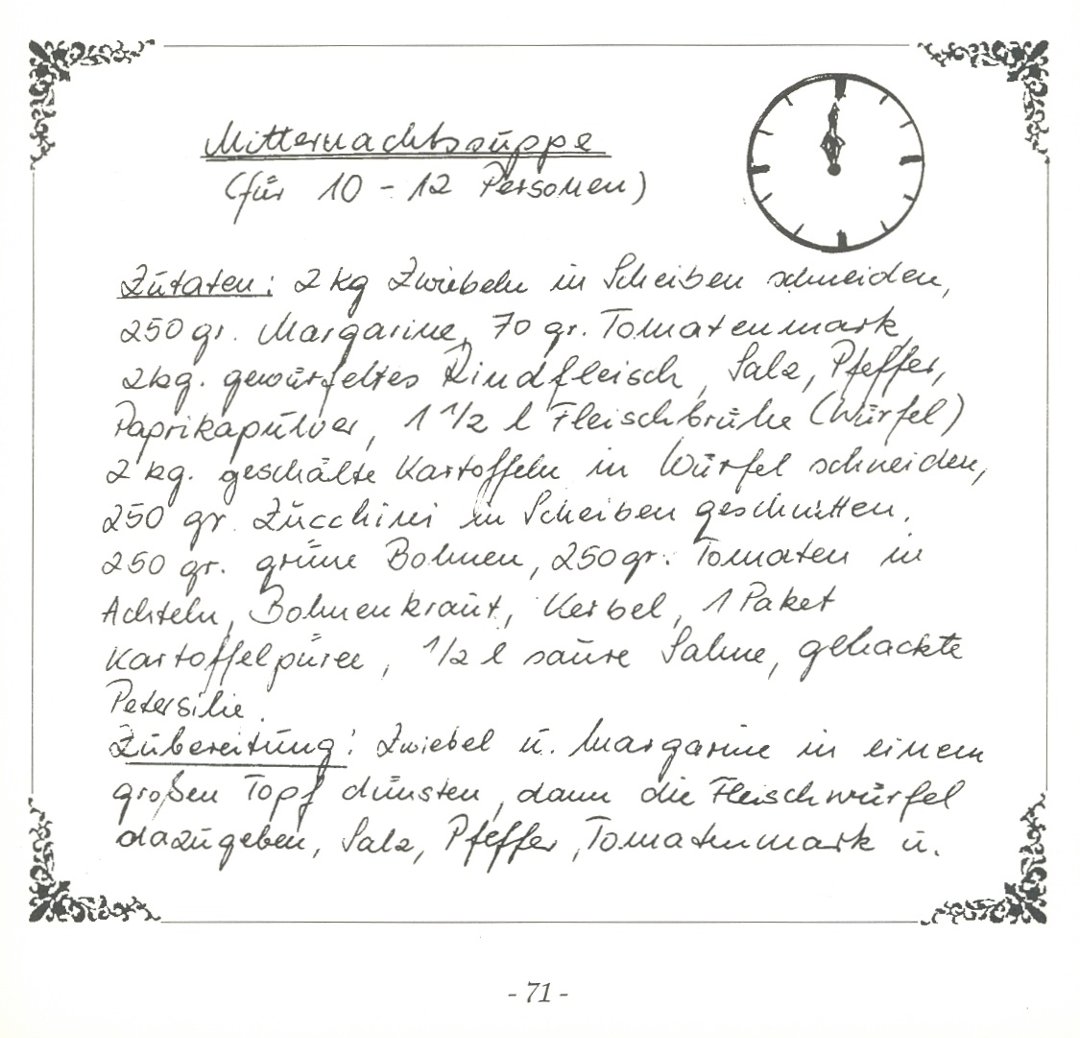 Mitternachtssuppe
(für 10 - 12 Personen)
Zutaten: 2 kg Zwiebeln in Scheiben schneiden,
250 gr. Margarine, 70 gr. Tomatenmark,
2kg. gewürfeltes Rindfleisch, Salz, Pfeffer,
Paprikapulver, 1 1/2 l Fleischbrühe (Würfel)
2 kg. geschälte Kartoffeln in Würfel schneiden,
250 gr. Zucchini in Scheiben geschnitten.
250 gr. grüne Bohnen, 250gr. Tomaten in
Achteln, Bohnenkraut, Kerbel, 1 Paket
Kartoffelpüree, 1/2 l saure Sahne, gehackte
Petersilie.
Zubereitung: Zwiebel u. Margarine in einem
großen Topf dünsten, dann die Fleischwürfel
dazugeben, Salz, Pfeffer, Tomatenmark u.
- 71 -